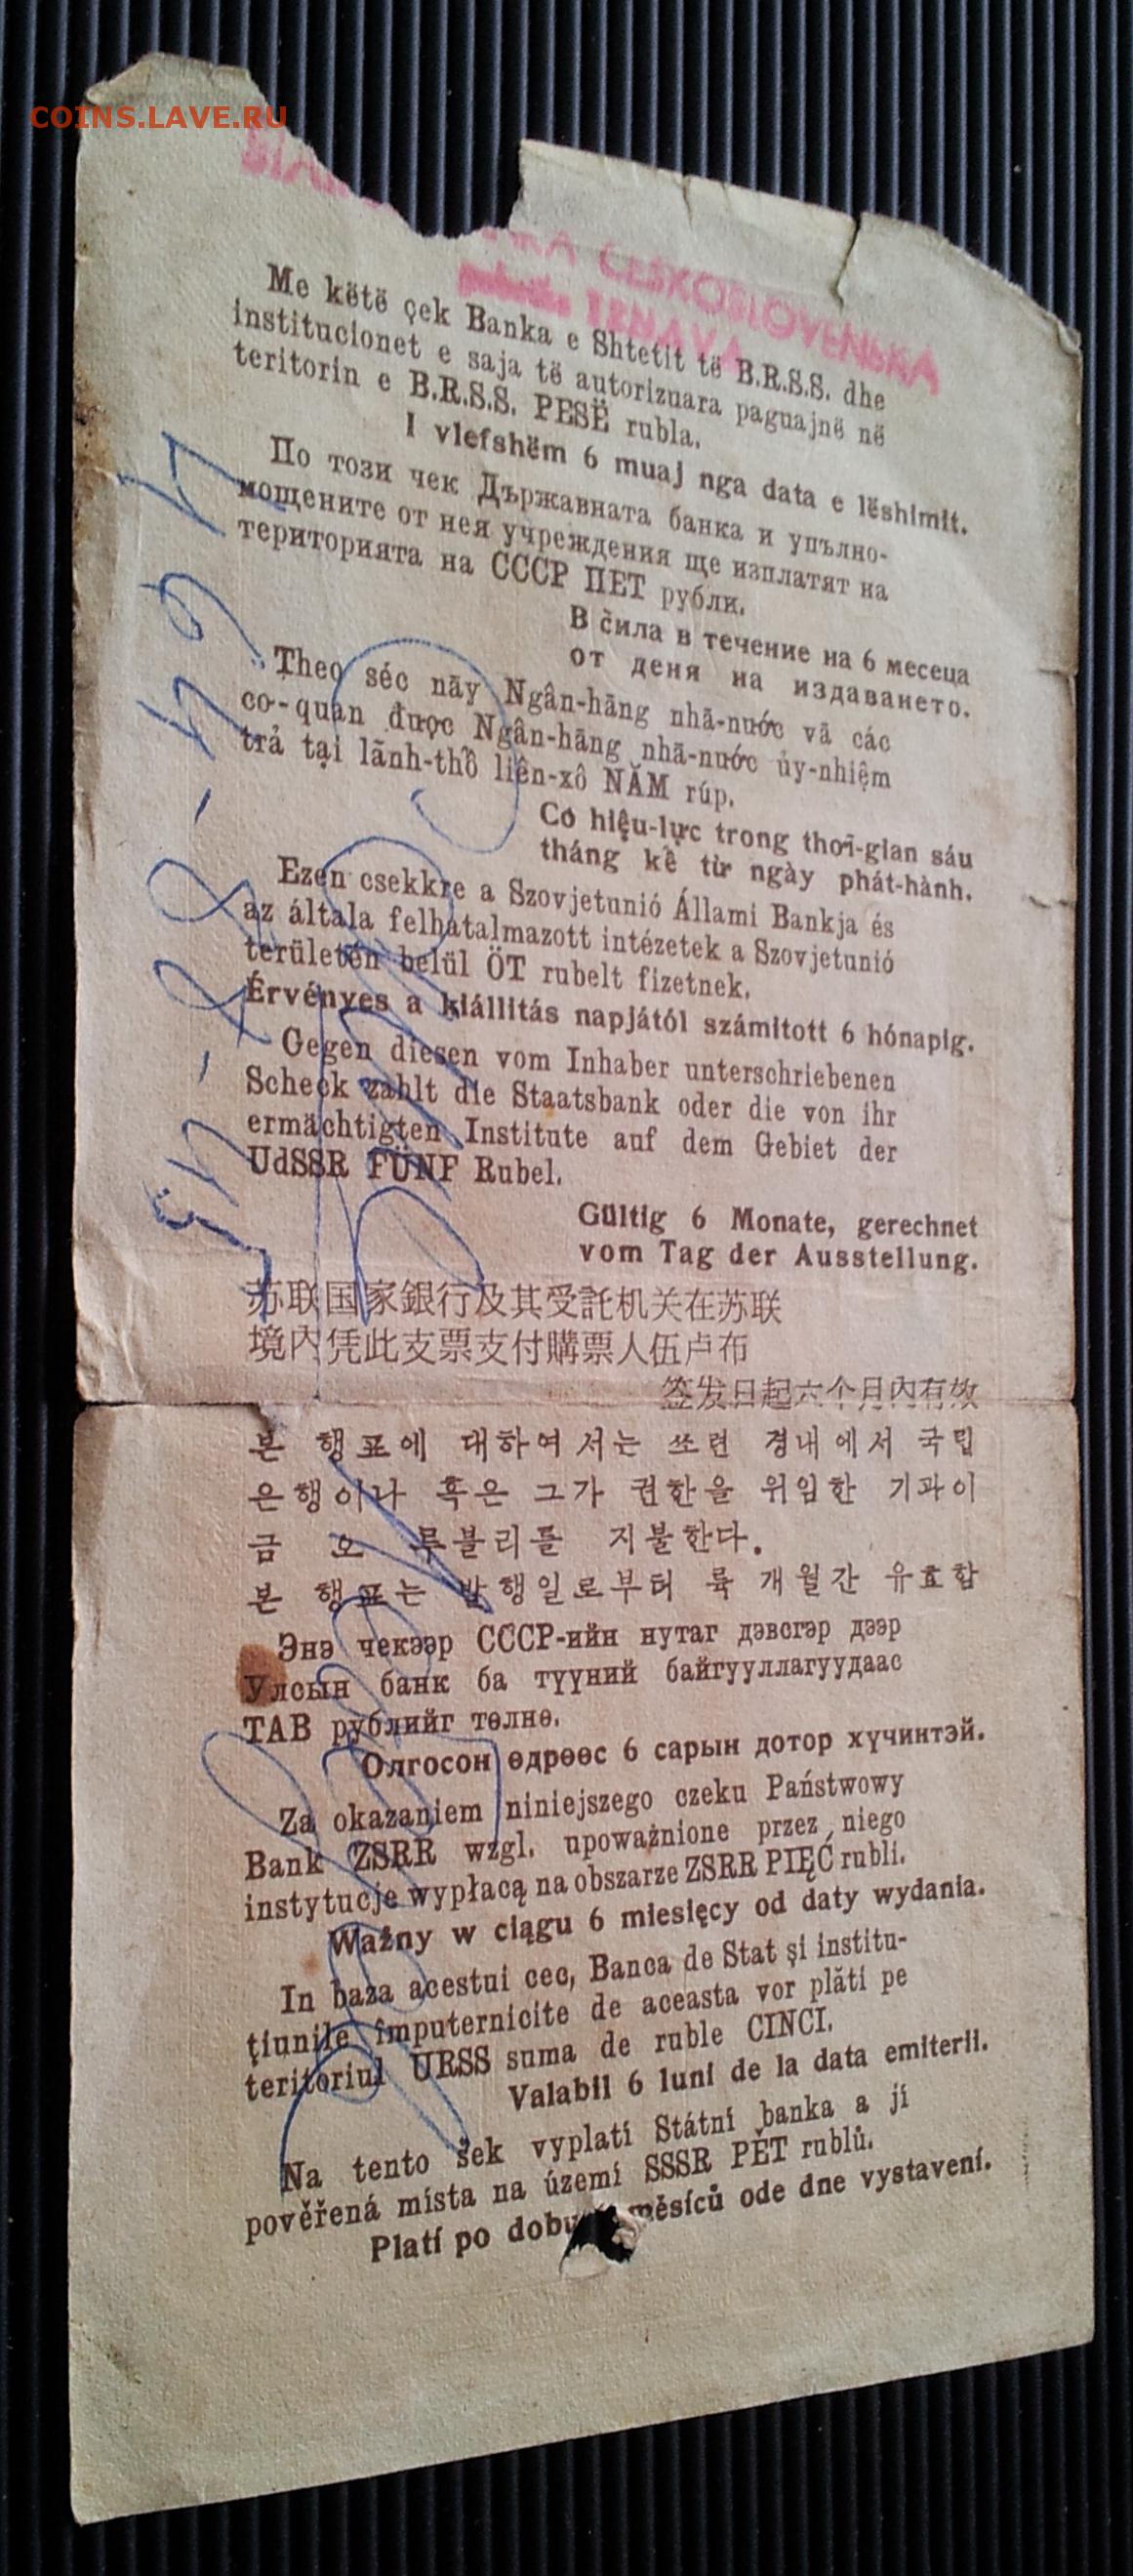 COINS.LAVE.RU
ČESKOSLOVENSKÁ
TRNAVA
Me këtë çek Banka e Shtetit të B.R.S.S. dhe
institucionet e saja të autorizuara paguajnë në
teritorin e B.R.S.S. PESË rubla.
I vlefshëm 6 muaj nga data e lëshimit.
По този чек Държавната банка и упълно-
мощените от нея учреждения ще изплатят на
територията на СССР ПЕТ рубли.
В сила в течение на 6 месеца
от деня на издаването.
Theo séc nãy Ngân-hãng nhã-nước vã các
cơ-quan được Ngân-hãng nhã-nước ủy-nhiệm
trả tại lãnh-thổ liên-xô NĂM rúp.
Có hiệu-lực trong thơĩ-gian sáu
tháng kể từ ngày phát-hành.
Ezen csekkre a Szovjetunió Állami Bankja és
az általa felhatalmazott intézetek a Szovjetunió
területén belül ÖT rubelt fizetnek.
Érvényes a kiállitás napjától számitott 6 hónapig.
Gegen diesen vom Inhaber unterschriebenen
Scheck zahlt die Staatsbank oder die von ihr
ermächtigten Institute auf dem Gebiet der
UdSSR FÜNF Rubel.
Gültig 6 Monate, gerechnet
vom Tag der Ausstellung.
苏联国家銀行及其受託机关在苏联
境内凭此支票支付購票人伍卢布
签发日起六个月内有效
본 행표에 대하여서는 쏘련 경내에서 국립
은행이나 혹은 그가 권한을 위임한 기관이
금 오 루블리를 지불한다.
본 행표는 발행일로부터 륙 개월간 유효함
Энэ чекээр СССР-ийн нутаг дэвсгэр дээр
Улсын банк ба түүний байгууллагуудаас
ТАВ рублийг төлнө.
Олгосон өдрөөс 6 сарын дотор хүчинтэй.
Za okazaniem niniejszego czeku Państwowy
Bank ZSRR wzgl. upoważnione przez niego
instytucje wypłacą na obszarze ZSRR PIĘĆ rubli.
Ważny w ciągu 6 miesięcy od daty wydania.
In baza acestui cec, Banca de Stat și institu-
ţiunile împuternicite de aceasta vor plăti pe
teritoriul URSS suma de ruble CINCI.
Valabil 6 luni de la data emiterii.
Na tento šek vyplatí Státní banka a jí
pověřená místa na území SSSR PĚT rublů.
Platí po dobu měsíců ode dne vystavení.